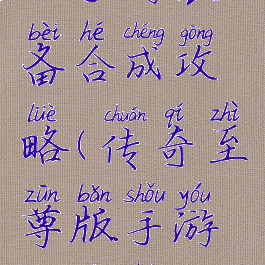 bèi hé chéng gōng
备合成攻
lüè chuán qí zhì
略(传奇至
zūn bǎn shǒu yóu
尊版手游